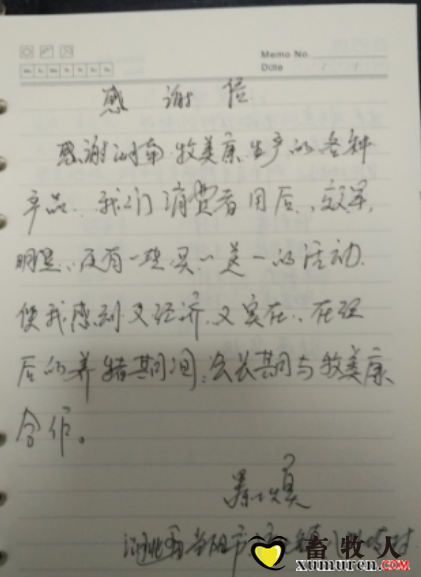 Memo No.
Date
Mo Tu We Th Fr Sa Su
感谢信
感谢河南牧美康生产的各种
产品、我们消费者用后、效果
明显、没有一些买一送一的活动.
使我感到又经济、又实在、在以
后的养猪期间、会长期与牧美康
合作。
畜牧人
xumuren.com